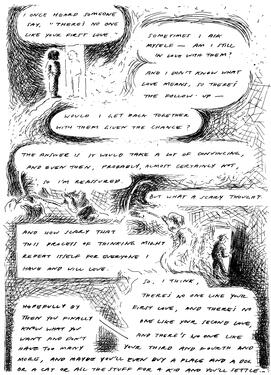 I ONCE HEARD SOMEONE
SAY, "THERE'S NO ONE
LIKE YOUR FIRST LOVE."
SOMETIMES I ASK
MYSELF — AM I STILL
IN LOVE WITH THEM?
AND I DON'T KNOW WHAT
LOVE MEANS, SO THERE'S
THE FOLLOW UP —
WOULD I GET BACK TOGETHER
WITH THEM GIVEN THE CHANCE?
THE ANSWER IS IT WOULD TAKE A LOT OF CONVINCING,
AND EVEN THEN, PROBABLY, ALMOST CERTAINLY NOT,
SO I'M REASSURED
BUT WHAT A SCARY THOUGHT
AND HOW SCARY THAT
THIS PROCESS OF THINKING MIGHT
REPEAT ITSELF FOR EVERYONE I
HAVE AND WILL LOVE.
SO, I THINK,
THERE'S NO ONE LIKE YOUR
FIRST LOVE, AND THERE'S NO
ONE LIKE YOUR SECOND LOVE,
AND THERE'S NO ONE LIKE
YOUR THIRD AND FOURTH AND
HOPEFULLY BY
THEN YOU FINALLY
KNOW WHAT YOU
WANT AND DON'T
HAVE TOO MANY
MORE, AND MAYBE YOU'LL EVEN BUY A PLACE AND A DOG
OR A CAT OR ALL THE STUFF FOR A KID AND YOU'LL SETTLE...